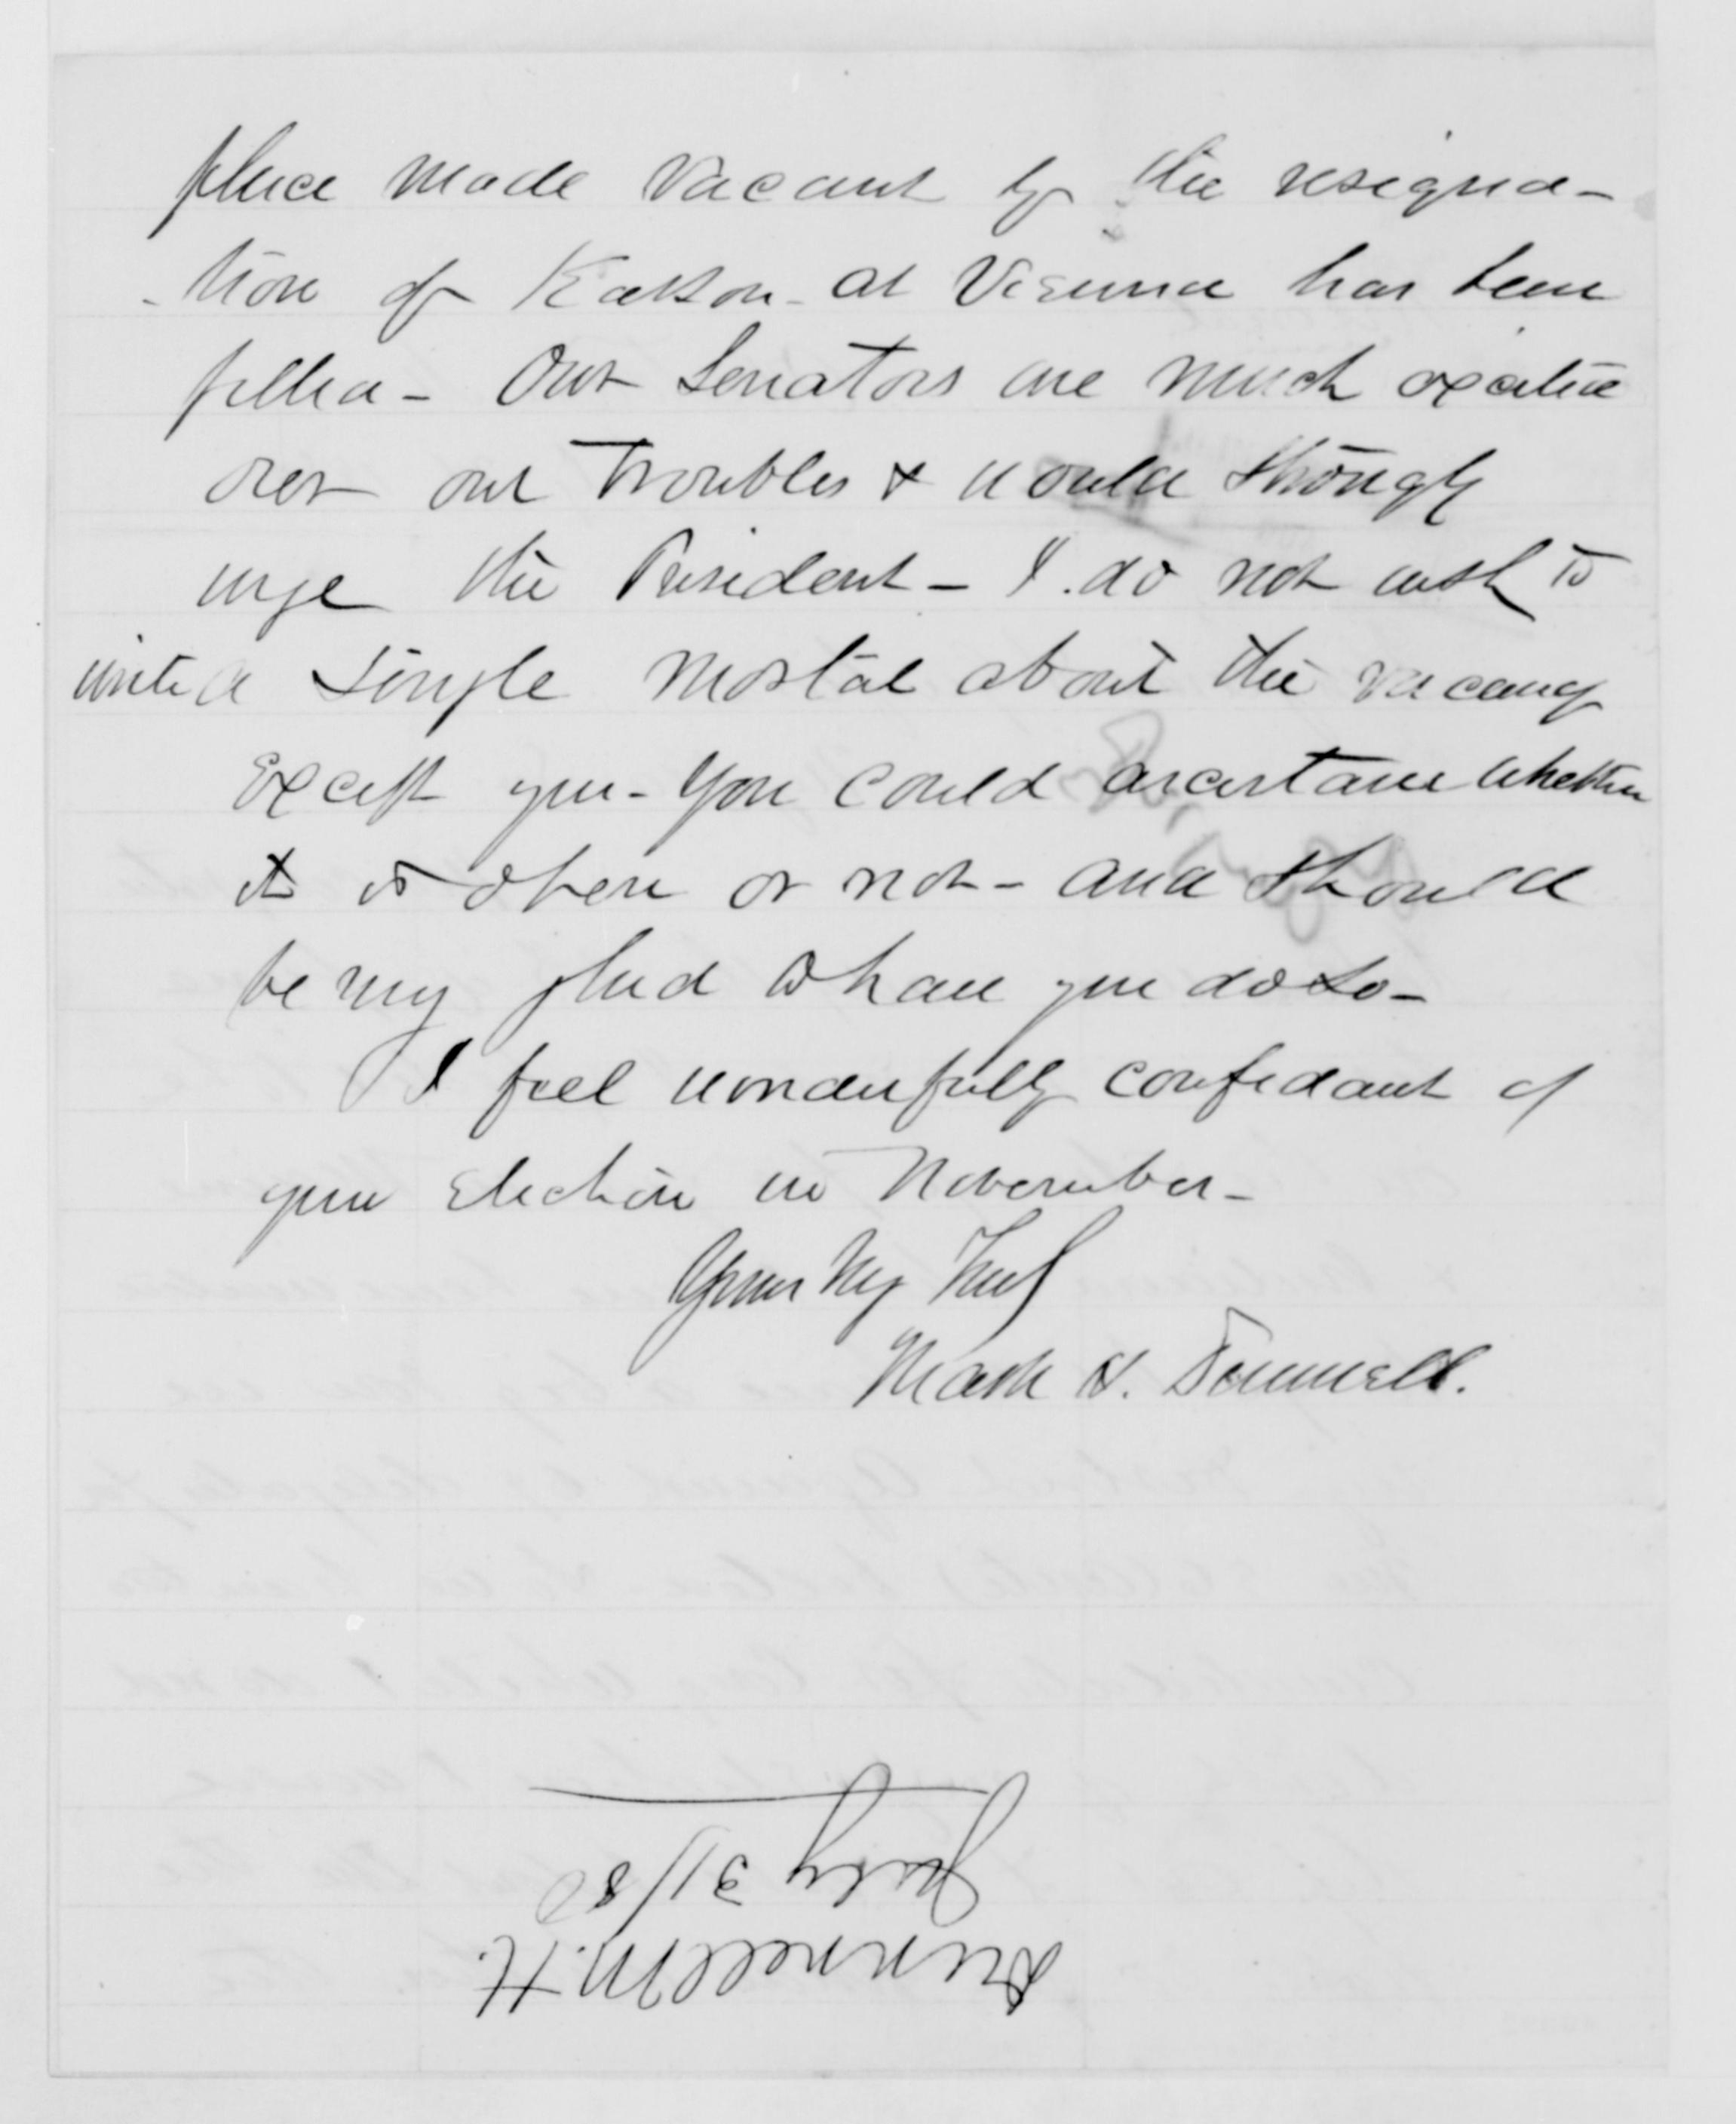 place made vacant by the resigna-
-tion of Kasson at Vienna has been
filled - Our Senators are much excited
over our troubles & would strongly
urge the President - I do not wish to
write a single mortal about the vacancy
except you - You could ascertain whether
it is open or not - and should
be very glad to have you do so -
I feel wonderfully confidant of
your Election in November -
Yours Very Truly
Mark H. Dunnell.
Dunnell M. H.
July 31/80